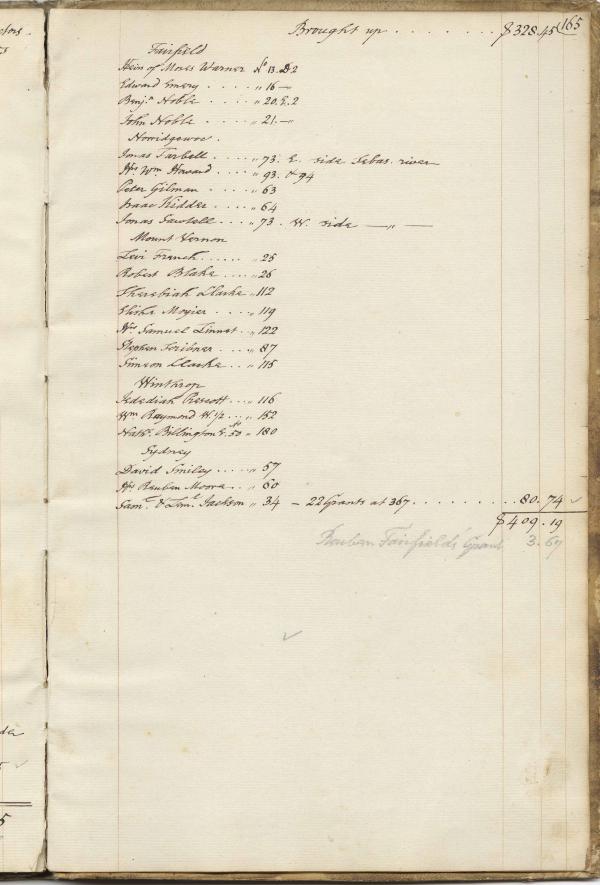 Brought up . . . . . . . . $328.45 165
Fairfield
Heirs of Moses Warner No 13. D. 2
Edward Emery . . . . . " 16 —
Benjn. Noble . . . . " 20. E. 2
John Noble . . . . . " 21. —
Norridgewoc .
Jonas Tarbell . . . . . " 73. E. side Sebas. river
Hrs Wm Howard . . . . " 93. & 94
Peter Gilman . . . . " 63
Isaac Kidder . . . . " 64
Jonas Sawtell . . . . " 73 . W. side — " —
Mount Vernon
Levi French . . . . . " 25
Robert Blake . . . . " 26
Sherebiah Clarke . . " 112
Elisha Mogier . . . . " 119
Hrs Samuel Linnet . . " 122
Stephen Scribner . . . . " 87
Simeon Clarke . . . " 115
Winthrop
Jedediah Prescott . . . " 116
Wm Raymond W. 1/2 . . . " 152
Nathl. Billington E. 50 As " 180
Sydney
David Smiley . . . . " 57
Hrs Reuben Moore . . . " 60
Saml. & Leml. Jackson " 34 — 22 Grants at 367 . . . . . . . . . 80.74 ✓
$409.19
Reuben Fairfield's Grant 3.67
✓
5